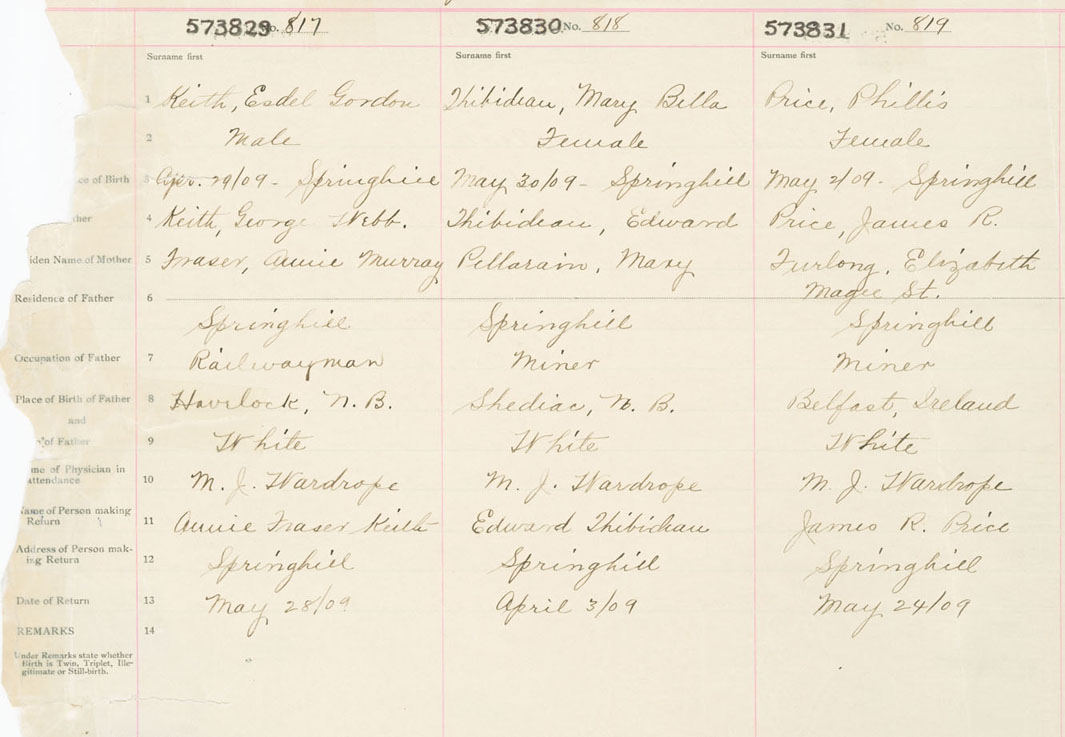 573829 No. 817 573830 No. 818 573831 No. 819
Surname first Surname first Surname first
1 Keith, Esdel Gordon Thibideau, Mary Bella Price, Phillis
2 Male Female Female
ce of Birth 3 Apr. 29/09 - Springhill May 30/09 - Springhill May 2/09 - Springhill
ther 4 Keith, George Webb. Thibideau, Edward Price, James R.
iden Name of Mother 5 Fraser, Annie Murray Pellarain, Mary Furlong, Elizabeth
Magee St.
Residence of Father 6
Springhill Springhill Springhill
Occupation of Father 7 Railwayman Miner Miner
Place of Birth of Father 8 Havelock, N.B. Shediac, N.B. Belfast, Ireland
and
of Father 9 White White White
me of Physician in
attendance 10 M. J. Wardrope M. J. Wardrope M. J. Wardrope
Name of Person making
Return 11 Annie Fraser Keith Edward Thibideau James R. Price
Address of Person mak-
ing Return 12 Springhill Springhill Springhill
Date of Return 13 May 28/09 April 3/09 May 24/09
REMARKS 14
Under Remarks state whether
Birth is Twin, Triplet, Ille-
gitimate or Still-birth.